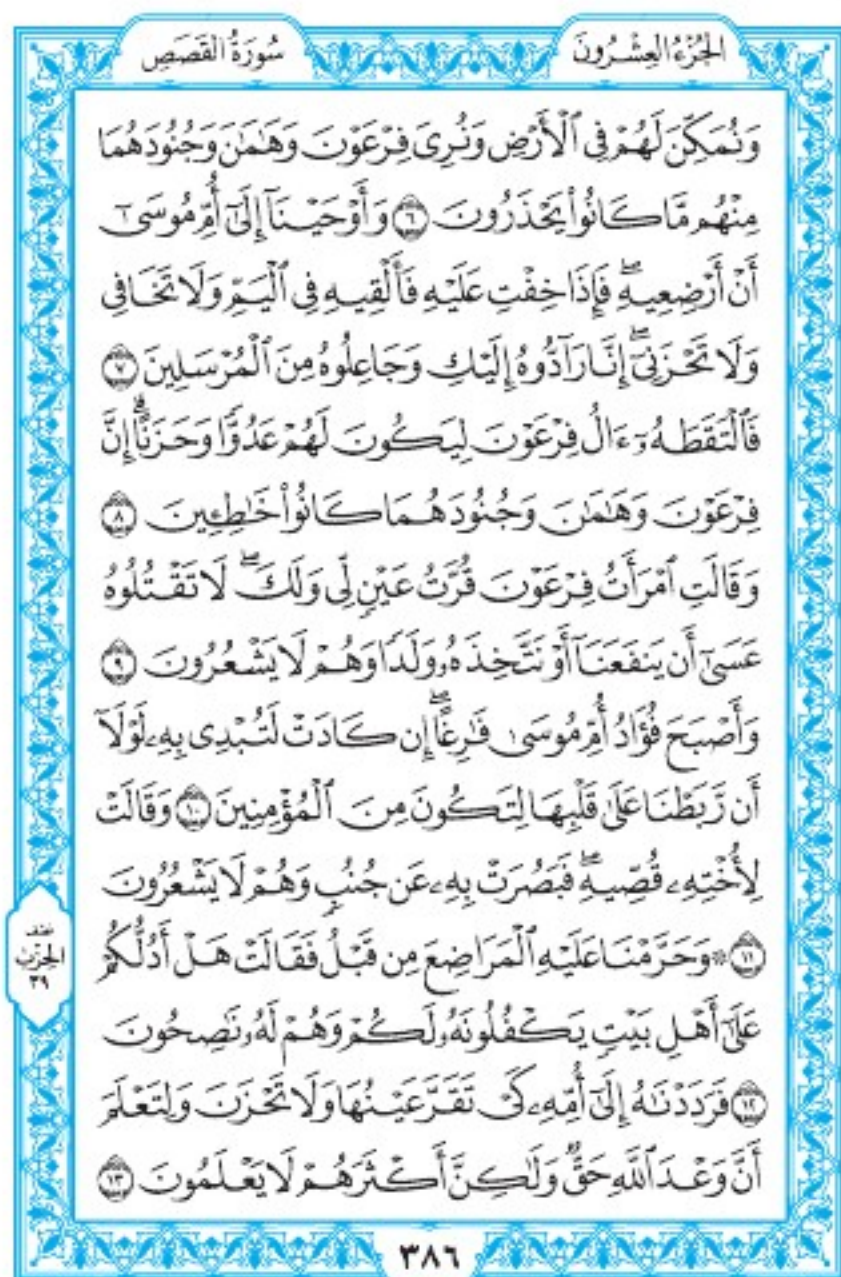 الجُزْءُ العِشْرُونَ
سُورَةُ القَصَصِ
وَنُمَكِّنَ لَهُمْ فِي ٱلْأَرْضِ وَنُرِيَ فِرْعَوْنَ وَهَٰمَٰنَ وَجُنُودَهُمَا
مِنْهُم مَّا كَانُواْ يَحْذَرُونَ ٦ وَأَوْحَيْنَآ إِلَىٰٓ أُمِّ مُوسَىٰٓ
أَنْ أَرْضِعِيهِۖ فَإِذَا خِفْتِ عَلَيْهِ فَأَلْقِيهِ فِي ٱلْيَمِّ وَلَا تَخَافِي
وَلَا تَحْزَنِيٓۖ إِنَّا رَآدُّوهُ إِلَيْكِ وَجَاعِلُوهُ مِنَ ٱلْمُرْسَلِينَ ٧
فَٱلْتَقَطَهُۥٓ ءَالُ فِرْعَوْنَ لِيَكُونَ لَهُمْ عَدُوّٗا وَحَزَنًاۗ إِنَّ
فِرْعَوْنَ وَهَٰمَٰنَ وَجُنُودَهُمَا كَانُواْ خَٰطِـِٔينَ ٨
وَقَالَتِ ٱمْرَأَتُ فِرْعَوْنَ قُرَّتُ عَيْنٖ لِّي وَلَكَۖ لَا تَقْتُلُوهُ
عَسَىٰٓ أَن يَنفَعَنَآ أَوْ نَتَّخِذَهُۥ وَلَدٗا وَهُمْ لَا يَشْعُرُونَ ٩
وَأَصْبَحَ فُؤَادُ أُمِّ مُوسَىٰ فَٰرِغًاۖ إِن كَادَتْ لَتُبْدِي بِهِۦ لَوْلَآ
أَن رَّبَطْنَا عَلَىٰ قَلْبِهَا لِتَكُونَ مِنَ ٱلْمُؤْمِنِينَ ١٠ وَقَالَتْ
لِأُخْتِهِۦ قُصِّيهِۖ فَبَصُرَتْ بِهِۦ عَن جُنُبٖ وَهُمْ لَا يَشْعُرُونَ
١١ ۞ وَحَرَّمْنَا عَلَيْهِ ٱلْمَرَاضِعَ مِن قَبْلُ فَقَالَتْ هَلْ أَدُلُّكُمْ
عَلَىٰٓ أَهْلِ بَيْتٖ يَكْفُلُونَهُۥ لَكُمْ وَهُمْ لَهُۥ نَٰصِحُونَ
١٢ فَرَدَدْنَٰهُ إِلَىٰٓ أُمِّهِۦ كَيْ تَقَرَّ عَيْنُهَا وَلَا تَحْزَنَ وَلِتَعْلَمَ
أَنَّ وَعْدَ ٱللَّهِ حَقّٞ وَلَٰكِنَّ أَكْثَرَهُمْ لَا يَعْلَمُونَ ١٣
نصف
الحزب
٣٩
٣٨٦